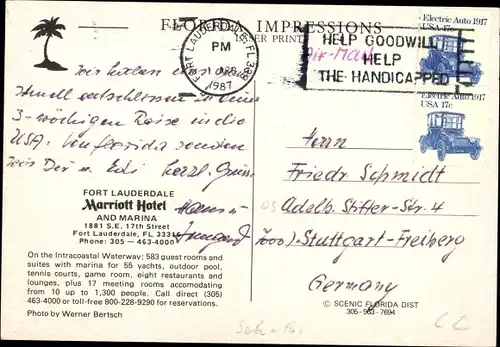 FLORIDA IMPRESSIONS
LASER PRINT
FORT LAUDERDALE, FL 333
PM
1987
HELP GOODWILL
HELP
THE HANDICAPPED
Electric Auto 1917
USA 17c
Electric Auto 1917
USA 17c
Air-Mail
Wir haben uns
schnell entschlossen zu einer
3-wöchigen Reise in die
USA. Von Florida senden
wir Dir u. Edi herzl. Grüsse
Hans u.
Irmgard
Herrn
Friedr. Schmidt
Adalb. Stifter-Str. 4
7000 Stuttgart-Freiberg
Germany
FORT LAUDERDALE
Marriott Hotel
AND MARINA
1881 S.E. 17th Street
Fort Lauderdale, FL 33316
Phone: 305 — 463-4000
On the Intracoastal Waterway; 583 guest rooms and
suites with marina for 55 yachts, outdoor pool,
tennis courts, game room, eight restaurants and
lounges, plus 17 meeting rooms accomodating
from 10 up to 1,300 people. Call direct (305)
463-4000 or toll-free 800-228-9290 for reservations.
Photo by Werner Bertsch
© SCENIC FLORIDA DIST
305-963-7694